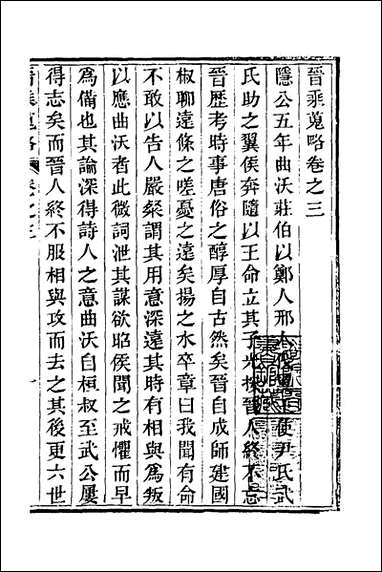 晉乘蒐略卷之三
隱公五年曲沃莊伯以鄭人邢人伐翼王使尹氏武
氏助之翼侯奔隨以王命立其子光按晉人終不忘
晉歷考時事唐俗之醇厚自古然矣晉自成師建國
椒聊遠條之嗟憂之遠矣揚之水卒章曰我聞有命
不敢以告人嚴粲謂其用意深遠其時有相與為叛
以應曲沃者此微詞泄其謀欲昭侯聞之戒懼而早
為備也其論深得詩人之意曲沃自桓叔至武公屢
得志矣而晉人終不服相與攻而去之其後更六世
晉乘蒐略 卷之三 一